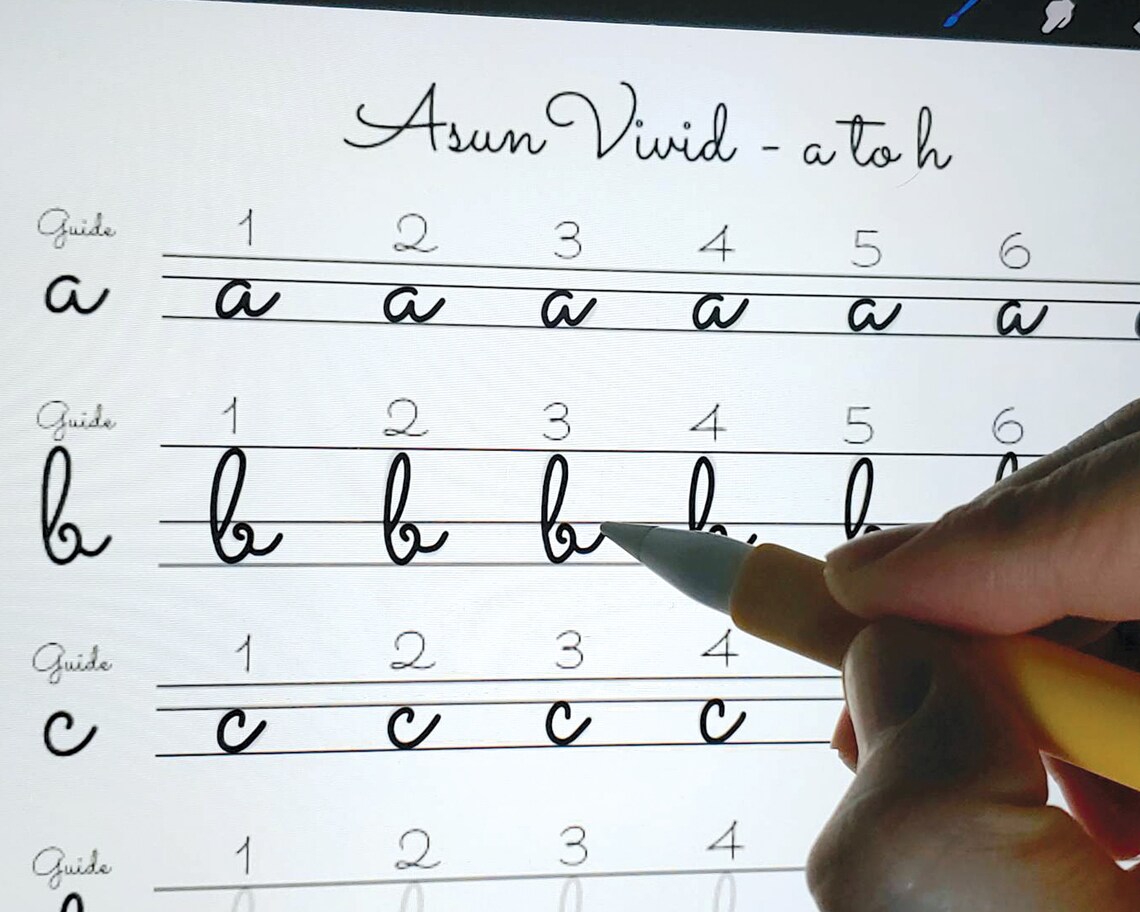 Asun Vivid - a to h
Guide 1 2 3 4 5 6
a a a a a a a
Guide 1 2 3 4 5 6
b b b b b b
Guide 1 2 3 4
c c c c c
Guide 1 2 3 4